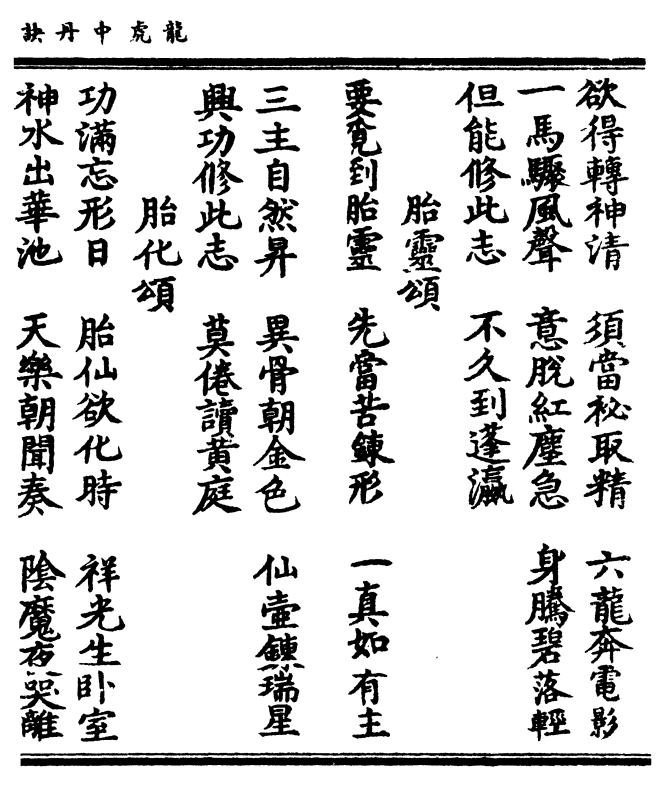 龍虎中丹訣
欲得轉神清 須當祕取精 六龍奔電影
一馬驟風聲 意脫紅塵急 身騰碧落輕
但能修此志 不久到蓬瀛
胎靈頌
要覓到胎靈 先當苦鍊形 一真如有主
三主自然昇 異骨朝金色 仙壺鍊瑞星
興功修此志 莫倦讀黃庭
胎化頌
功滿忘形日 胎仙欲化時 祥光生卧室
神水出華池 天樂朝聞奏 陰魔夜哭離